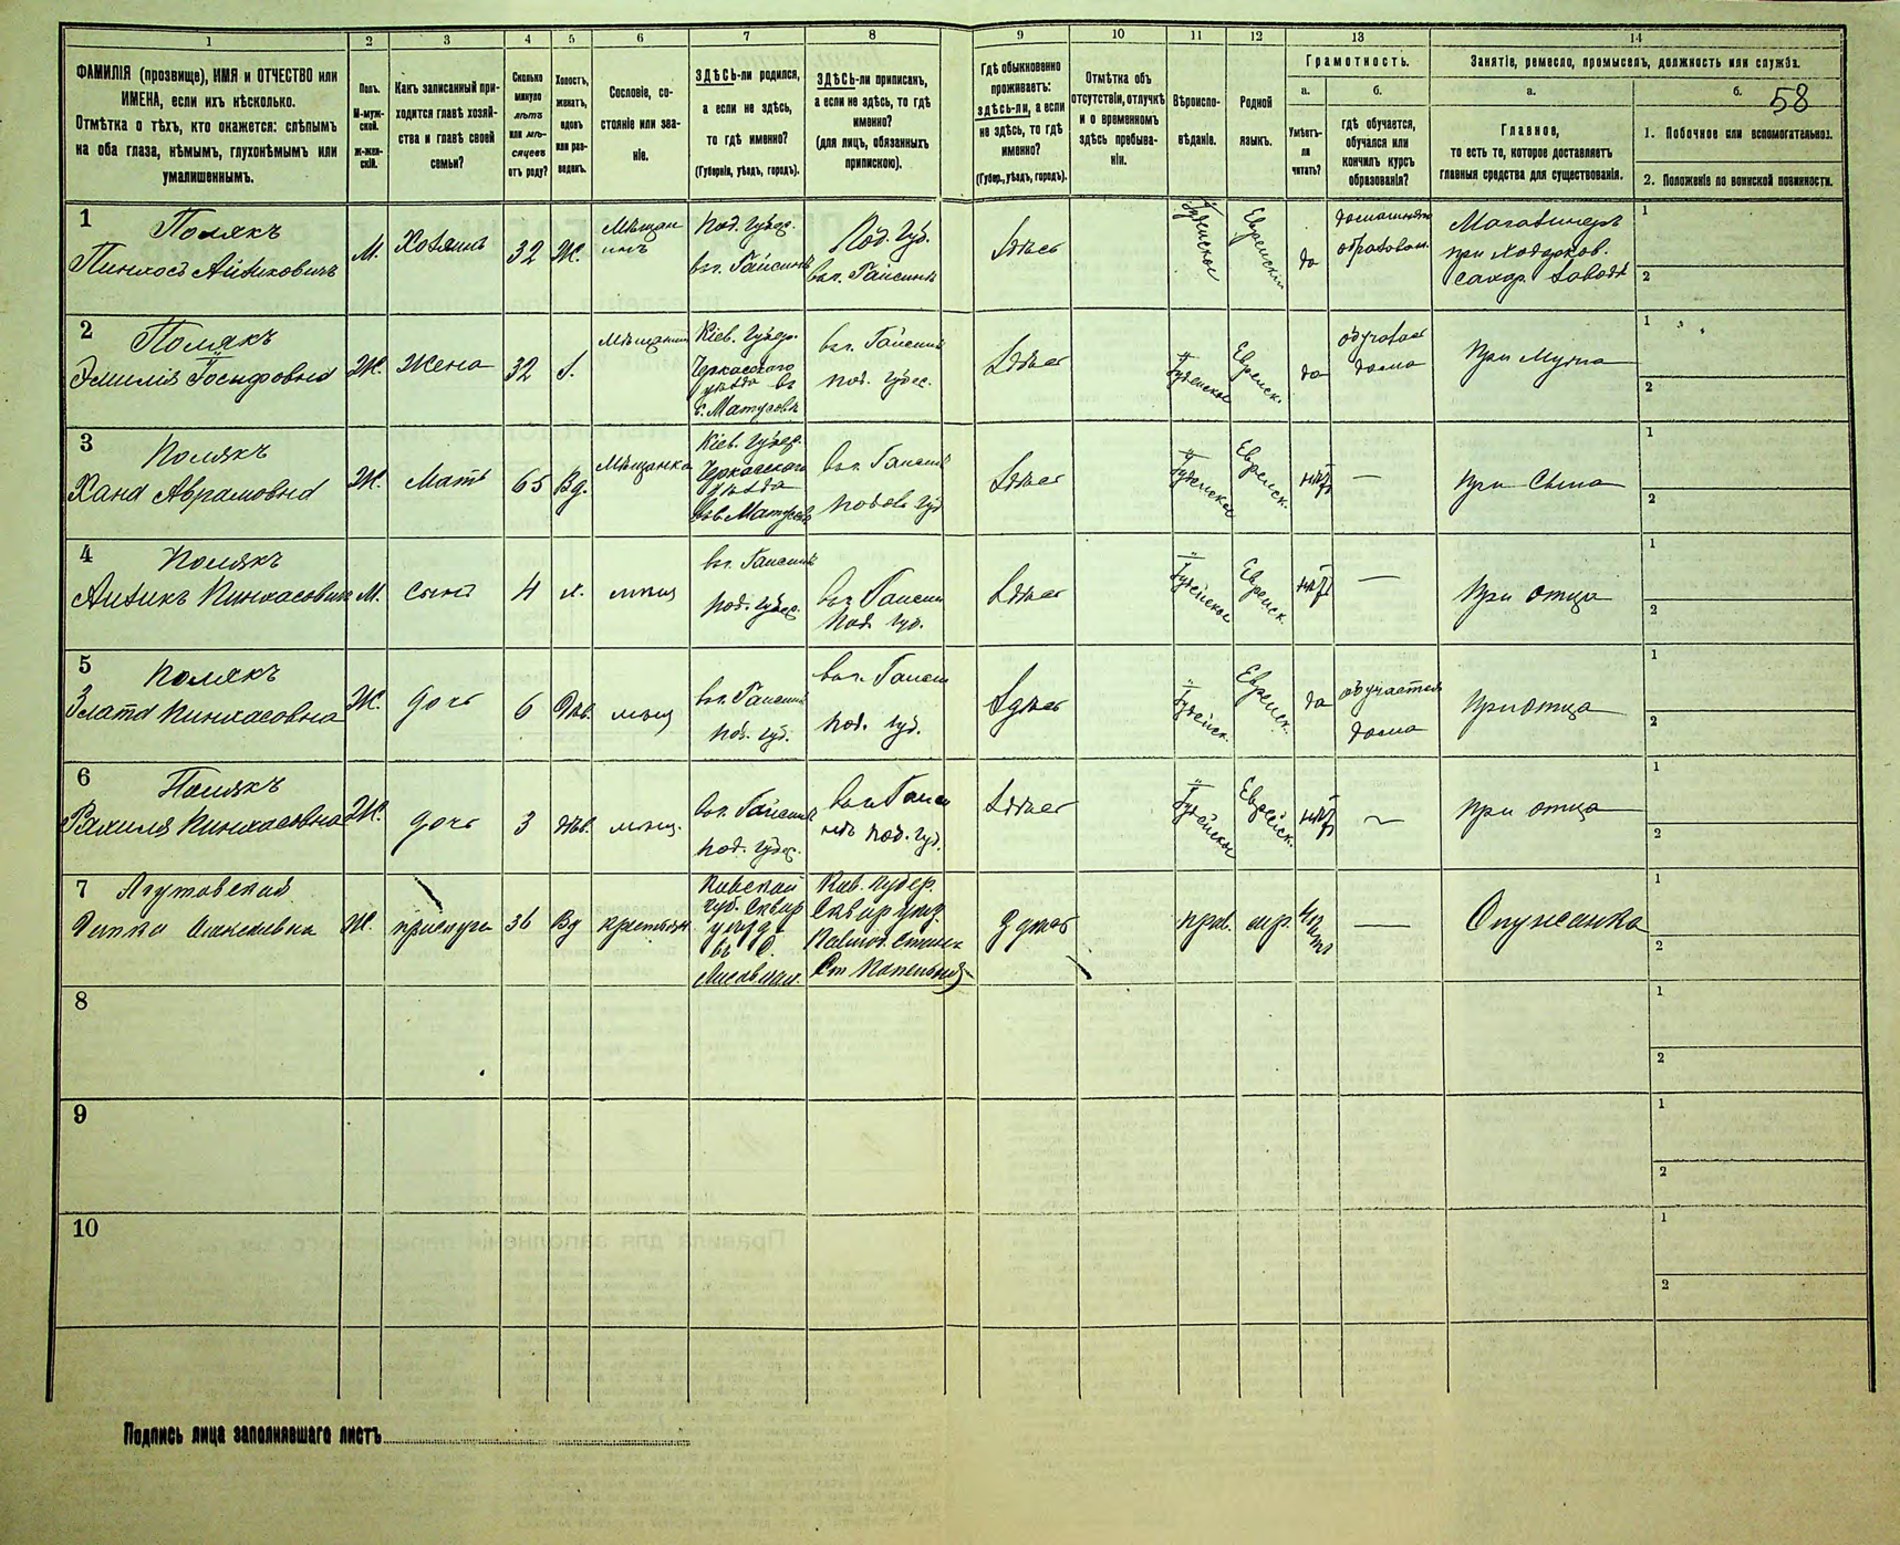 1 2 3 4 5 6 7 8 9 10 11 12 13 14
ФАМИЛІЯ (прозвище), ИМЯ и ОТЧЕСТВО или
ИМЕНА, если ихъ нѣсколько.
Отмѣтка о тѣхъ, кто окажется: слѣпымъ
на оба глаза, нѣмымъ, глухонѣмымъ или
умалишеннымъ.
Полъ.
М-муж-
ской.
Ж-жен-
скій.
Какъ записанный при-
ходится главѣ хозяй-
ства и главѣ своей
семьи?
Сколько
минуло
лѣтъ
или мѣ-
сяцевъ
отъ роду?
Холостъ,
женатъ,
вдовъ
или раз-
веденъ.
Сословіе, со-
стояніе или зва-
ніе.
ЗДѢСЬ-ли родился,
а если не здѣсь,
то гдѣ именно?
(Губернія, уѣздъ, городъ).
ЗДѢСЬ-ли приписанъ,
а если не здѣсь, то гдѣ
именно?
(для лицъ, обязанныхъ
припискою).
Гдѣ обыкновенно
проживаетъ:
здѣсь-ли, а если
не здѣсь, то гдѣ
именно?
(Губер., уѣздъ, городъ).
Отмѣтка объ
отсутствіи, отлучкѣ
и о временномъ
здѣсь пребыва-
ніи.
Вѣроиспо-
вѣданіе.
Родной
языкъ.
Грамотность.
а.
Умѣетъ-
ли
читать?
б.
гдѣ обучается,
обучался или
кончилъ курсъ
образованія?
Занятіе, ремесло, промыселъ, должность или служба.
а.
Главное,
то есть то, которое доставляетъ
главныя средства для существованія.
б.
58
1. Побочное или вспомогательное.
2. Положеніе по воинской повинности.
1
Полякъ
Пинхосъ Айзиковичъ
М.
Хозяинъ
32
Ж.
Мѣщан
инъ
Под. Губер.
въ г. Гайсинѣ
Под. Губ.
въ г. Гайсинѣ
Здѣсь
Іудейское
Еврейскій
да
домашнее
образован.
Магазинеръ
при Ходорков.
сахар. заводѣ
1
2
2
Полякъ
Эмилія Іосифовна
Ж.
Жена
32
З.
Кіев. Губер.
Черкасского
уѣзда въ
с. Матусовѣ
въ г. Гайсинѣ
Под. Губер.
Здѣсь
Іудейское
Еврейск.
да
дома
При Мужѣ
1
2
3
Полякъ
Хана Аврамовна
Ж.
Мать
65
Вд.
Мѣщанка
Кіев. Губер.
Черкасского
уѣзда
въ с. Матусовѣ
въ г. Гайсинѣ
Подол. Губ
Здѣсь
Іудейское
Еврейск.
нѣтъ
—
При Сынѣ
1
2
4
Полякъ
Айзикъ Пинхасовичъ
М.
Сынъ
4
Х.
въ г. Гайсинѣ
Под. Губер.
въ г. Гайсин
Под. Губ.
Здѣсь
Іудейское
Еврейск.
нѣтъ
—
При отцѣ
1
2
5
Полякъ
Злата Пинхасовна
Ж.
дочь
6
Дѣв.
въ г. Гайсинѣ
Под. Губ.
въ г. Гайсин
Под. Губ.
Здѣсь
Іудейск.
Еврейск.
да
обучается
дома
При отцѣ
1
2
6
Полякъ
Рахиля Пинхасовна
Ж.
дочь
3
Дѣв.
въ г. Гайсинѣ
Под. Губер.
въ г. Гайси
нѣ Под. Губ.
Здѣсь
Іудейское
Еврейск.
нѣтъ
—
При отцѣ
1
2
7
Ж.
прислуга
36
Вд
крестьян.
Кіевской
губ. Сквир
уезда
въ с.
Кіев. Губер.
Сквир уез.
Здѣсь
прав.
нѣтъ
—
Служанка
1
2
8
1
2
9
1
2
10
1
2
Подпись лица заполнявшаго листъ